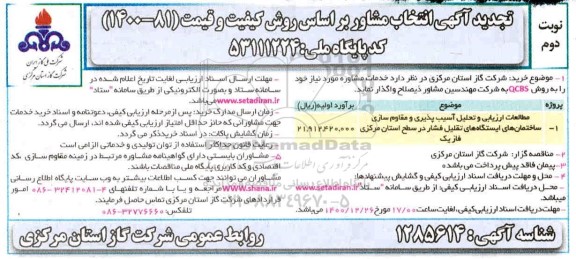 نوبت دوم
تجدید آگهی انتخاب مشاور بر اساس روش کیفیت و قیمت (۸۱-۱۴۰۰)
کد پایگاه ملی: ۵۳۱۱۱۲۲۴
شرکت ملی گاز ایران
شرکت گاز استان مرکزی
۱- موضوع خرید: شرکت گاز استان مرکزی در نظر دارد خدمات مشاوره مورد نیاز خود را به روش QCBS به شرکت مهندسین مشاور ذیصلاح واگذار نماید.
پروژه موضوع برآورد اولیه (ریال)
۱- مطالعات ارزیابی و تحلیل آسیب پذیری و مقاوم سازی ساختمان‌های ایستگاه‌های تقلیل فشار در سطح استان مرکزی فاز یک ۲۱.۹۱۲.۴۲۰.۰۰۰
۲- مناقصه گزار: شرکت گاز استان مرکزی
۳- پیمان فاقد پیش پرداخت می باشد
۴- مدل و مهلت دریافت اسناد ارزیابی کیفی و گشایش پیشنهادها:
- محل دریافت اسناد ارزیابی کیفی: از طریق سامانه "ستاد" www.setadiran.ir
مهلت دریافت اسناد ارزیابی کیفی، لغایت ساعت ۱۷/۰۰ مورخ ۱۴۰۰/۱۲/۲۶ می‌باشد.
- مهلت ارسال اسناد ارزیابی لغایت تاریخ اعلام شده در سامانه ستاد و بصورت الکترونیکی از طریق سامانه "ستاد" www.setadiran.ir می‌باشد.
- زمان ارسال مدارک خرید: پس از مرحله ارزیابی کیفی، دعوتنامه و اسناد خرید خدمات جهت مشاورانی که حائز حداقل امتیاز ارزیابی کیفی شده اند، ارسال می گردد.
- زمان گشایش پاکات: در اسناد خرید ذکر می گردد.
- رعایت قانون حداکثر استفاده از توان تولیدی و خدماتی الزامی است
۵- مشاوران بایستی دارای گواهینامه مشاوره مرتبط در زمینه مقاوم سازی ،کد اقتصادی و کد کاربری پایگاه ملی مناقصات باشند.
مشاوران می توانند جهت کسب اطلاعات بیشتر به وب سایت پایگاه اطلاع رسانی WWW.shana.ir مراجعه و یا با شماره تلفنهای ۴-۳۲۴۱۲۰۸۱-۰۸۶ امور قراردادهای شرکت گاز استان مرکزی تماس حاصل فرمایند.
تلفکس: ۳۲۷۷۶۶۶۰-۰۸۶
شناسه آگهی: ۱۲۸۵۶۱۴
روابط عمومی شرکت گاز استان مرکزی